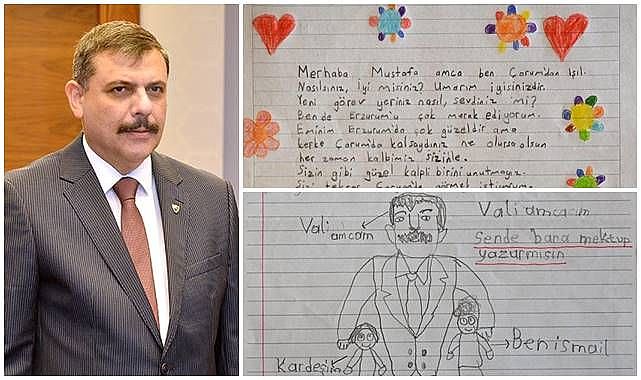 Merhaba Mustafa amca ben Çorum'dan Işıl.
Nasılsınız, iyi misiniz? Umarım iyisinizdir.
Yeni görev yeriniz nasıl, sevdiniz mi?
Bende Erzurum'u çok merak ediyorum.
Eminim Erzurum'da çok güzeldir ama
keşke Çorum'da kalsaydınız ne olursa olsun
her zaman kalbimiz sizinle.
Sizin gibi güzel kalpli birini unutmayız.
Vali amcam
Vali amcam
Sende bana mektup
yazarmısın
Ben ismail
Kardeşim